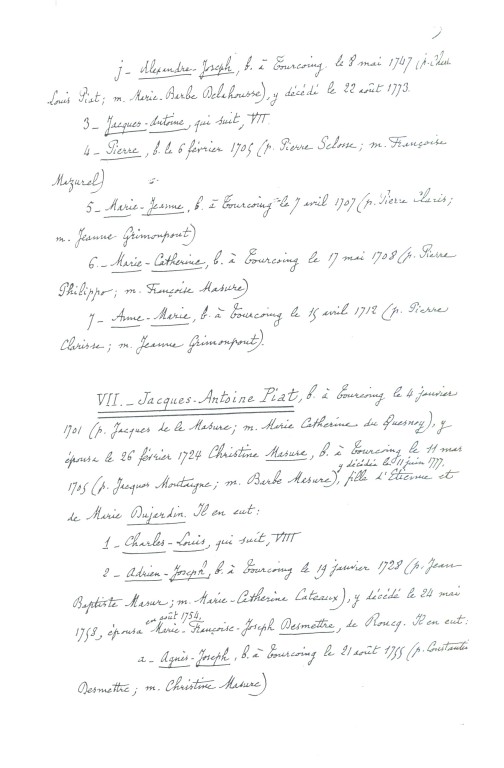 j - Alexandre-Joseph, b. à Tourcoing le 8 mai 1747 (p.
Louis Piat; m. Marie-Barbe Delahousse), y décédé le 22 août 1773.
3 - Jacques-Antoine, qui suit, VII
4 - Pierre, b. le 6 février 1705 (p. Pierre Selosse; m. Françoise
Mazurel)
5 - Marie-Jeanne, b. à Tourcoing le 7 avril 1707 (p. Pierre Claris;
m. Jeanne Grimonpont)
6 - Marie-Catherine, b. à Tourcoing le 17 mai 1708 (p. Pierre
Philippo; m. Françoise Masure)
7 - Anne-Marie, b. à Tourcoing le 15 avril 1712 (p. Pierre
Clarisse; m. Jeanne Grimonpont).
VII. - Jacques-Antoine Piat, b. à Tourcoing le 4 janvier
1701 (p. Jacques de le Masure; m. Marie Catherine du Quesnoy), y
épousa le 26 février 1724 Christine Masure, b. à Tourcoing le 11 mar
y décédée le 11 juin 1777.
1705 (p. Jacques Montaigne; m. Barbe Masure), fille d'Etienne et
de Marie Dujardin. Il en eut:
1 - Charles-Louis, qui suit, VIII
2 - Adrien-Joseph, b. à Tourcoing le 19 janvier 1728 (p. Jean
Baptiste Masur; m. Marie-Catherine Cateaux), y décédé le 24 mai
en août 1754,
1758, épousa Marie-Françoise-Joseph Desmettre, de Roncq. Il en eut:
a - Agnès-Joseph, b. à Tourcoing le 21 août 1755 (p. Constantin
Desmettre; m. Christine Masure)